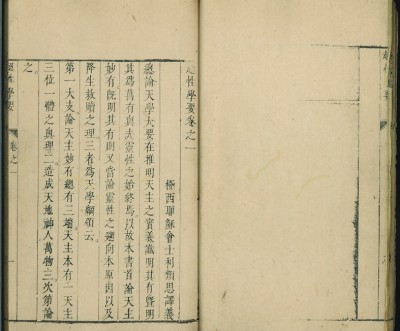 超性學要卷之一
極西耶穌會士利類思譯義
總論天學大要在推明天主之實義識明其有暨明
其為萬有與夫靈性之始終焉以故本書首論天主
妙有既明其有則又當論靈性之趨向本原因以及
降生救贖之理三者為天學綱領云
第一大支論天主妙有總有三端天主本有一天主
三位一體之奧理二造成天地神人萬物三次第論
之
超性學要
卷之一
一